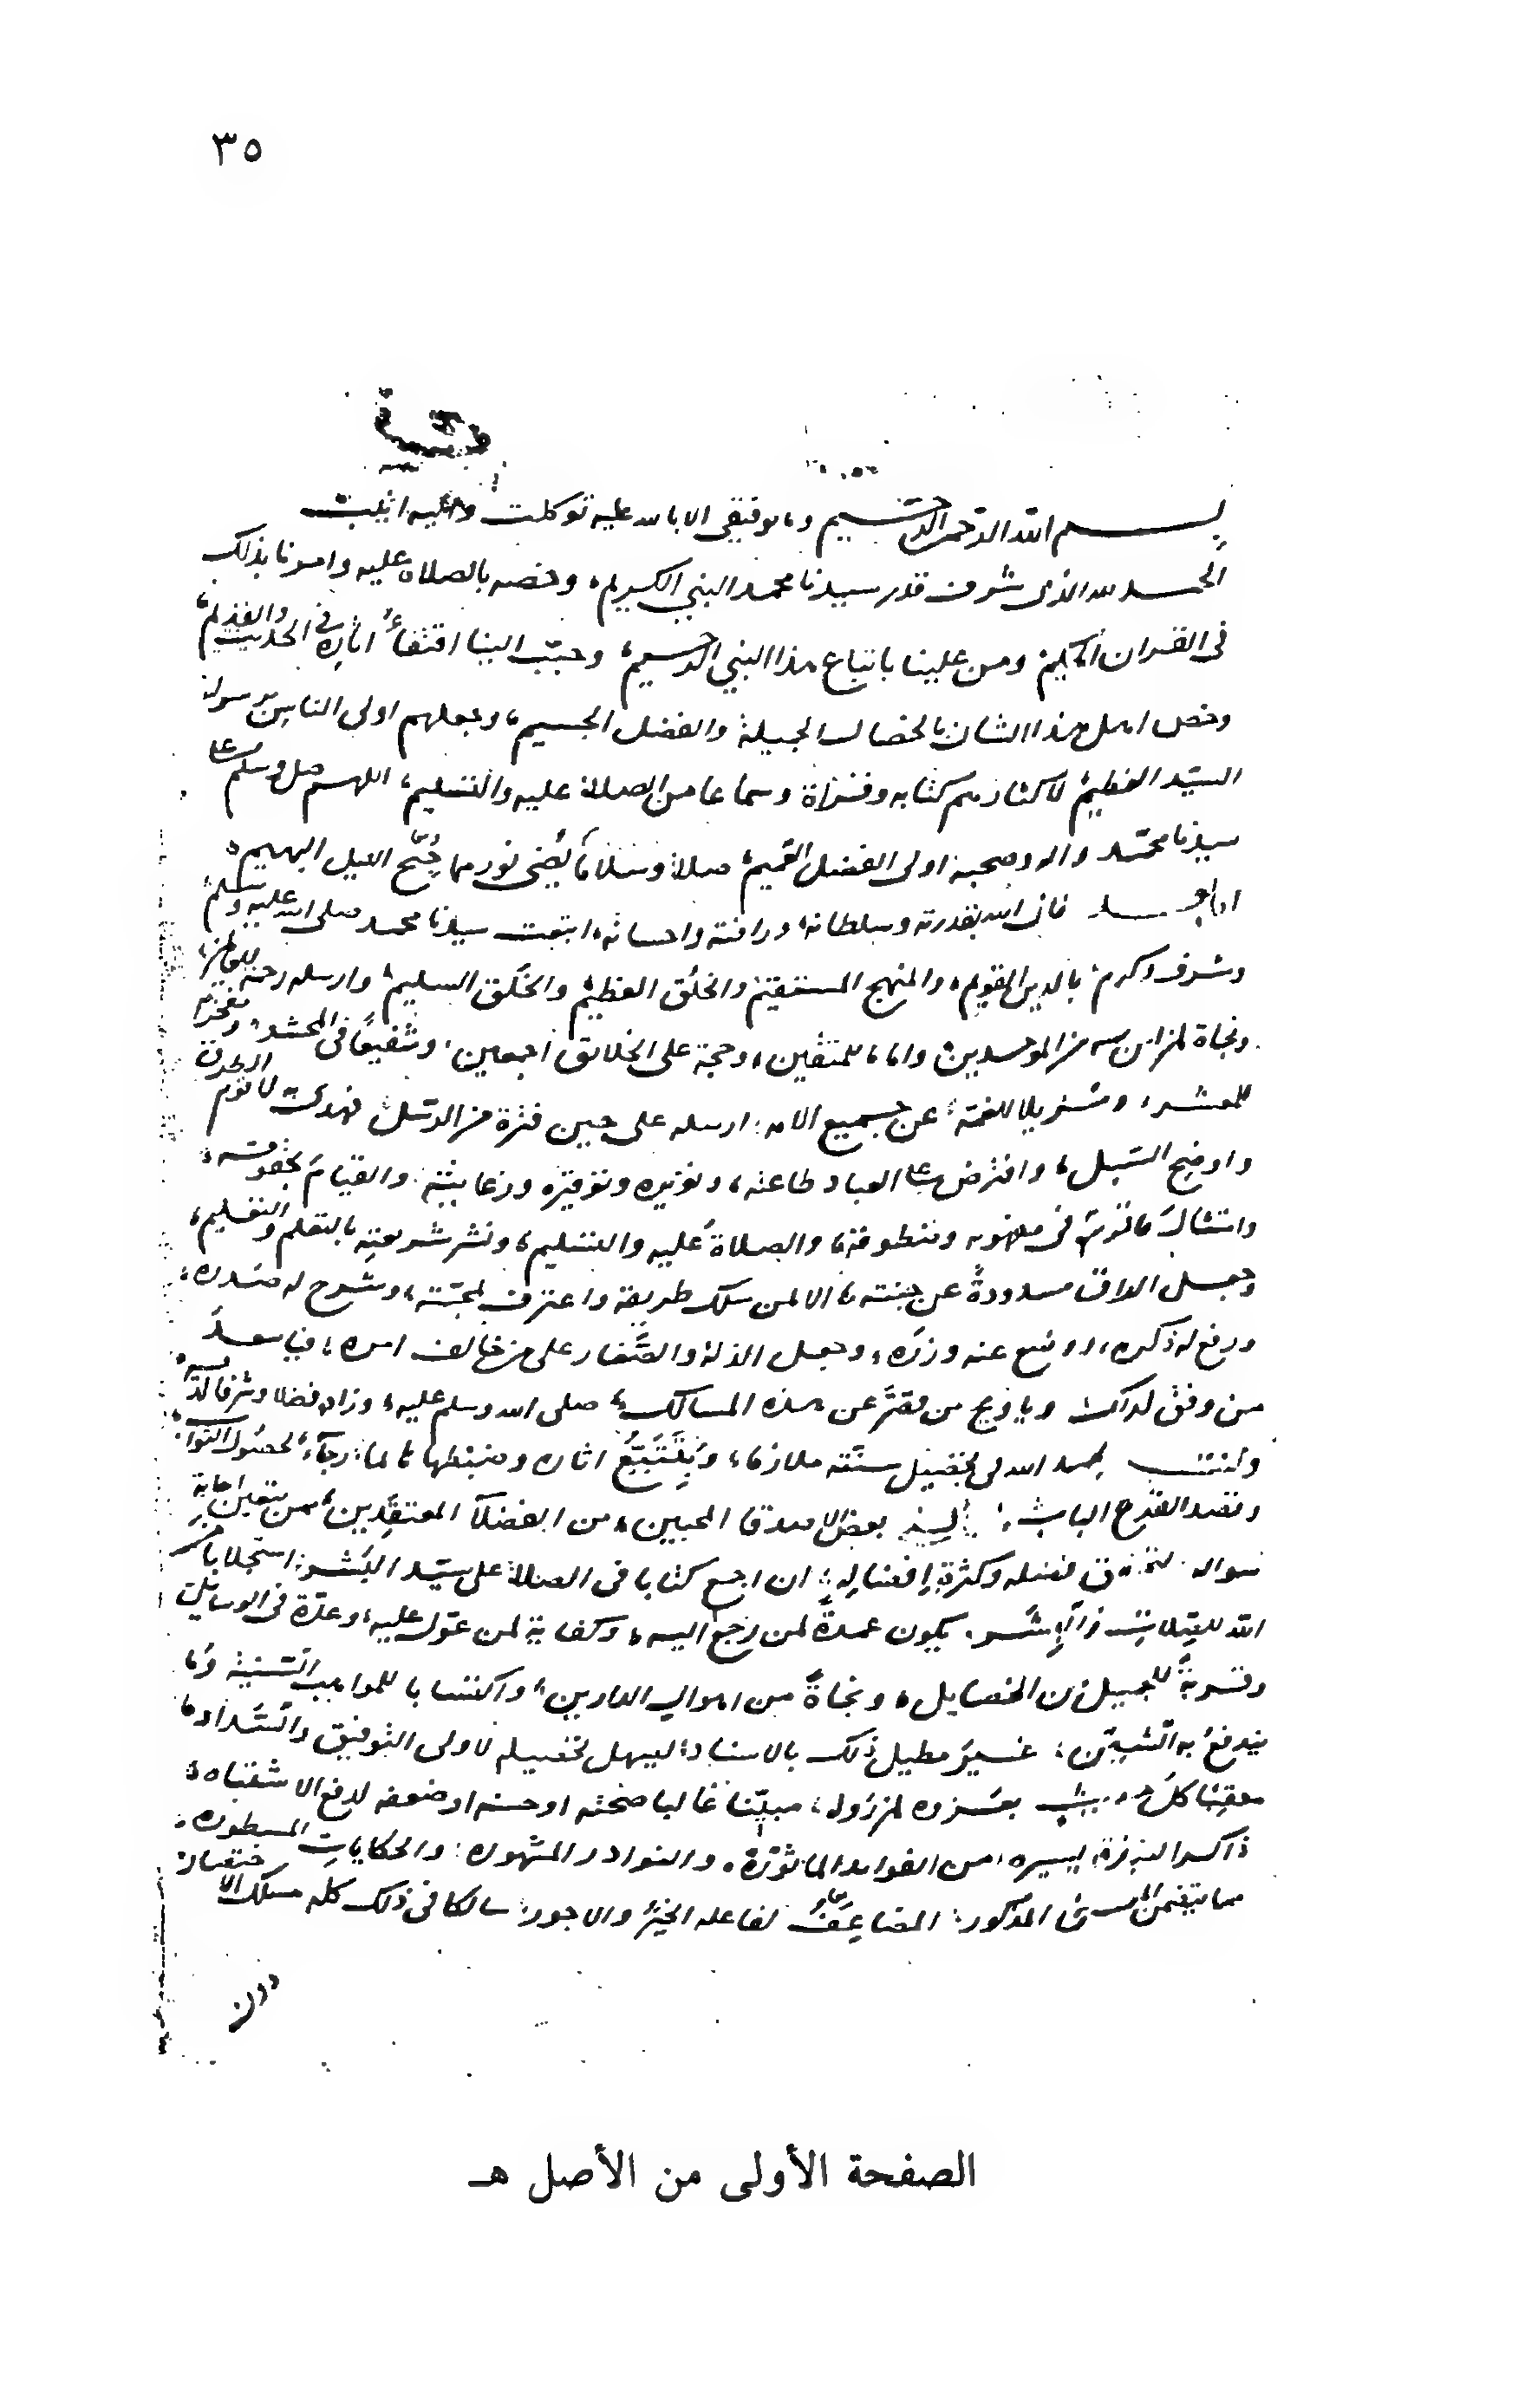 ٣٥
بسم الله الرحمن الرحيم وما توفيقي الا بالله عليه توكلت واليه انيب
الحمد لله الذى شرف قدر سيدنا محمد النبي الكريم، وخصه بالصلاة عليه وامرنا بذلك
فى القران الحكيم ومن علينا باتباع هذا النبي الرحيم، وحبّب الينا اقتفاءُ اثاره فى الحديث والقديم،
وخص اهل هذا الشان بالخصال الجميلة والفضل الجسيم، وجعلهم اولى الناس برسوله
السيّد العظيم لاكثارهم كتابه وقراة وسماعا من الصلاة عليه والتسليم، اللهم صل وسلم على
سيدنا محمّد واله وصحبه اولى الفضل العميم صلاة وسلاما يُضئ نورهما جُنح الليل البهيم،
اما بعد فان الله بقدرته وسلطانه، ورافته واحسانه، ابتعث سيدنا محمد صلى الله عليه وسلم
وشرف وكرم، بالدين القويم، والمنهج المستقيم والخلُق العظيم والخَلق السليم، وارسله رحمة للعالمين،
ونجاة لمن امن به من الموحدين، واماما للمتقين، وحجة على الخلائق اجمعين، وشفيعًا فى المحشر، ومفخرا
للمعشر، ومزيلا للغمة، عن جميع الامة، ارسله على حين فترة من الرسل، فهدى به لاقوم الطرق
واوضح السبل، وافترض على العباد طاعته، وتعزيره وتوقيره ورعايته، والقيامَ بحقوقه،
وامتثالَ ما قرره فى مفهومه ومنطوقه، والصلاةَ عليه والتسليم، ونشر شريعتِه بالتعلم والتعليم،
وجعل الطرق مسدودةً عن جنته، الا لمن سلك طريقه واعترف بمحبّته، وشرح له صدره،
ورفع له ذكره، ووضع عنه وزره، وجعل الذلة والصَّغار على من خالف امره، فيا سعدَ
من وفق لذلك ويا ويح من قصَّر عن هذه المسالك، صلى الله وسلم عليه، وزاده فضلا وشرفا لديه
وكنت بحمد الله لى تحصيل سنّته ملازما، وبِتَتَبُّع اثاره وضبطها عالما، رجآء لحصول الثواب،
وقصد القرع الباب، بعض الاصدقا المحبين، من الفضلآ المعتقِدين، ممن تتعين اجابة
سواله لتحقق فضله وكثرة افضاله، ان اجمع كتابا فى الصلاة على سيّد البشر، استجلابا من
الله للصِّلات والبِشر. يكون عمدةً لمن رجع اليه، وكفاية لمن عوّل عليه، وعدّة فى الوسائل
وقربةً للجميل من الخصايل، ونجاةً من اهوال الدارين، واكتسابا للمواهب السَّنية وما
يندفعُ به الشين، غيرَ مطيل ذلك بالاسناد، ليسهل تحصيله لاولى التوفيق والسَّداد،
معقِبًا كل حديث بعَزوه لمن رَوَاه، مبيّنا غالبا صحته او حسنه او ضعفه لدفع الاشتباه،
ذاكرا لنبذة يسيره، من الفوايد الماثورَة، والنوادر المشهوره، والحكاياتِ المسطوره،
مما يتضمن المعنى المذكور، المضاعِف لفاعله الخيرُ والاجور، سالكا فى ذلك كله مسلك الاختصار
دون
الصفحة الأولى من الأصل هـ